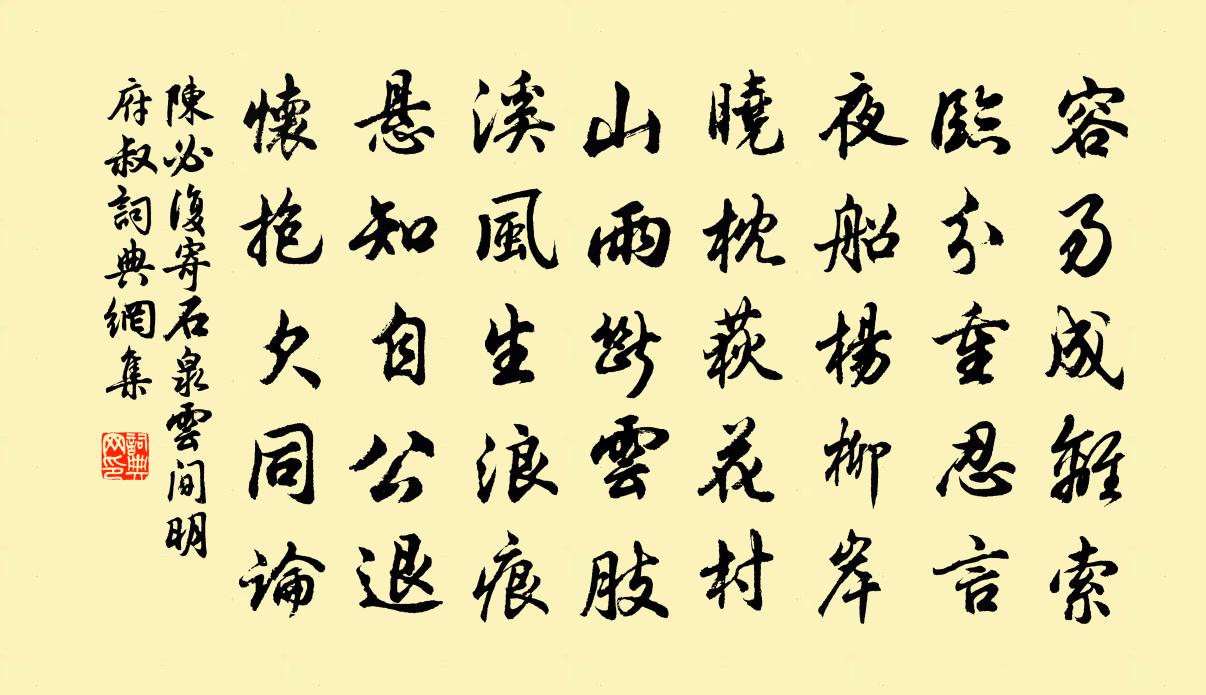 容易成離索
臨分重忍言
夜船楊柳岸
曉枕荻花村
山雨斷雲肢
溪風生浪痕
懸知自公退
懷抱欠同論
陳必復寄石泉雲間明
府叔詞典網集
詞典
网印